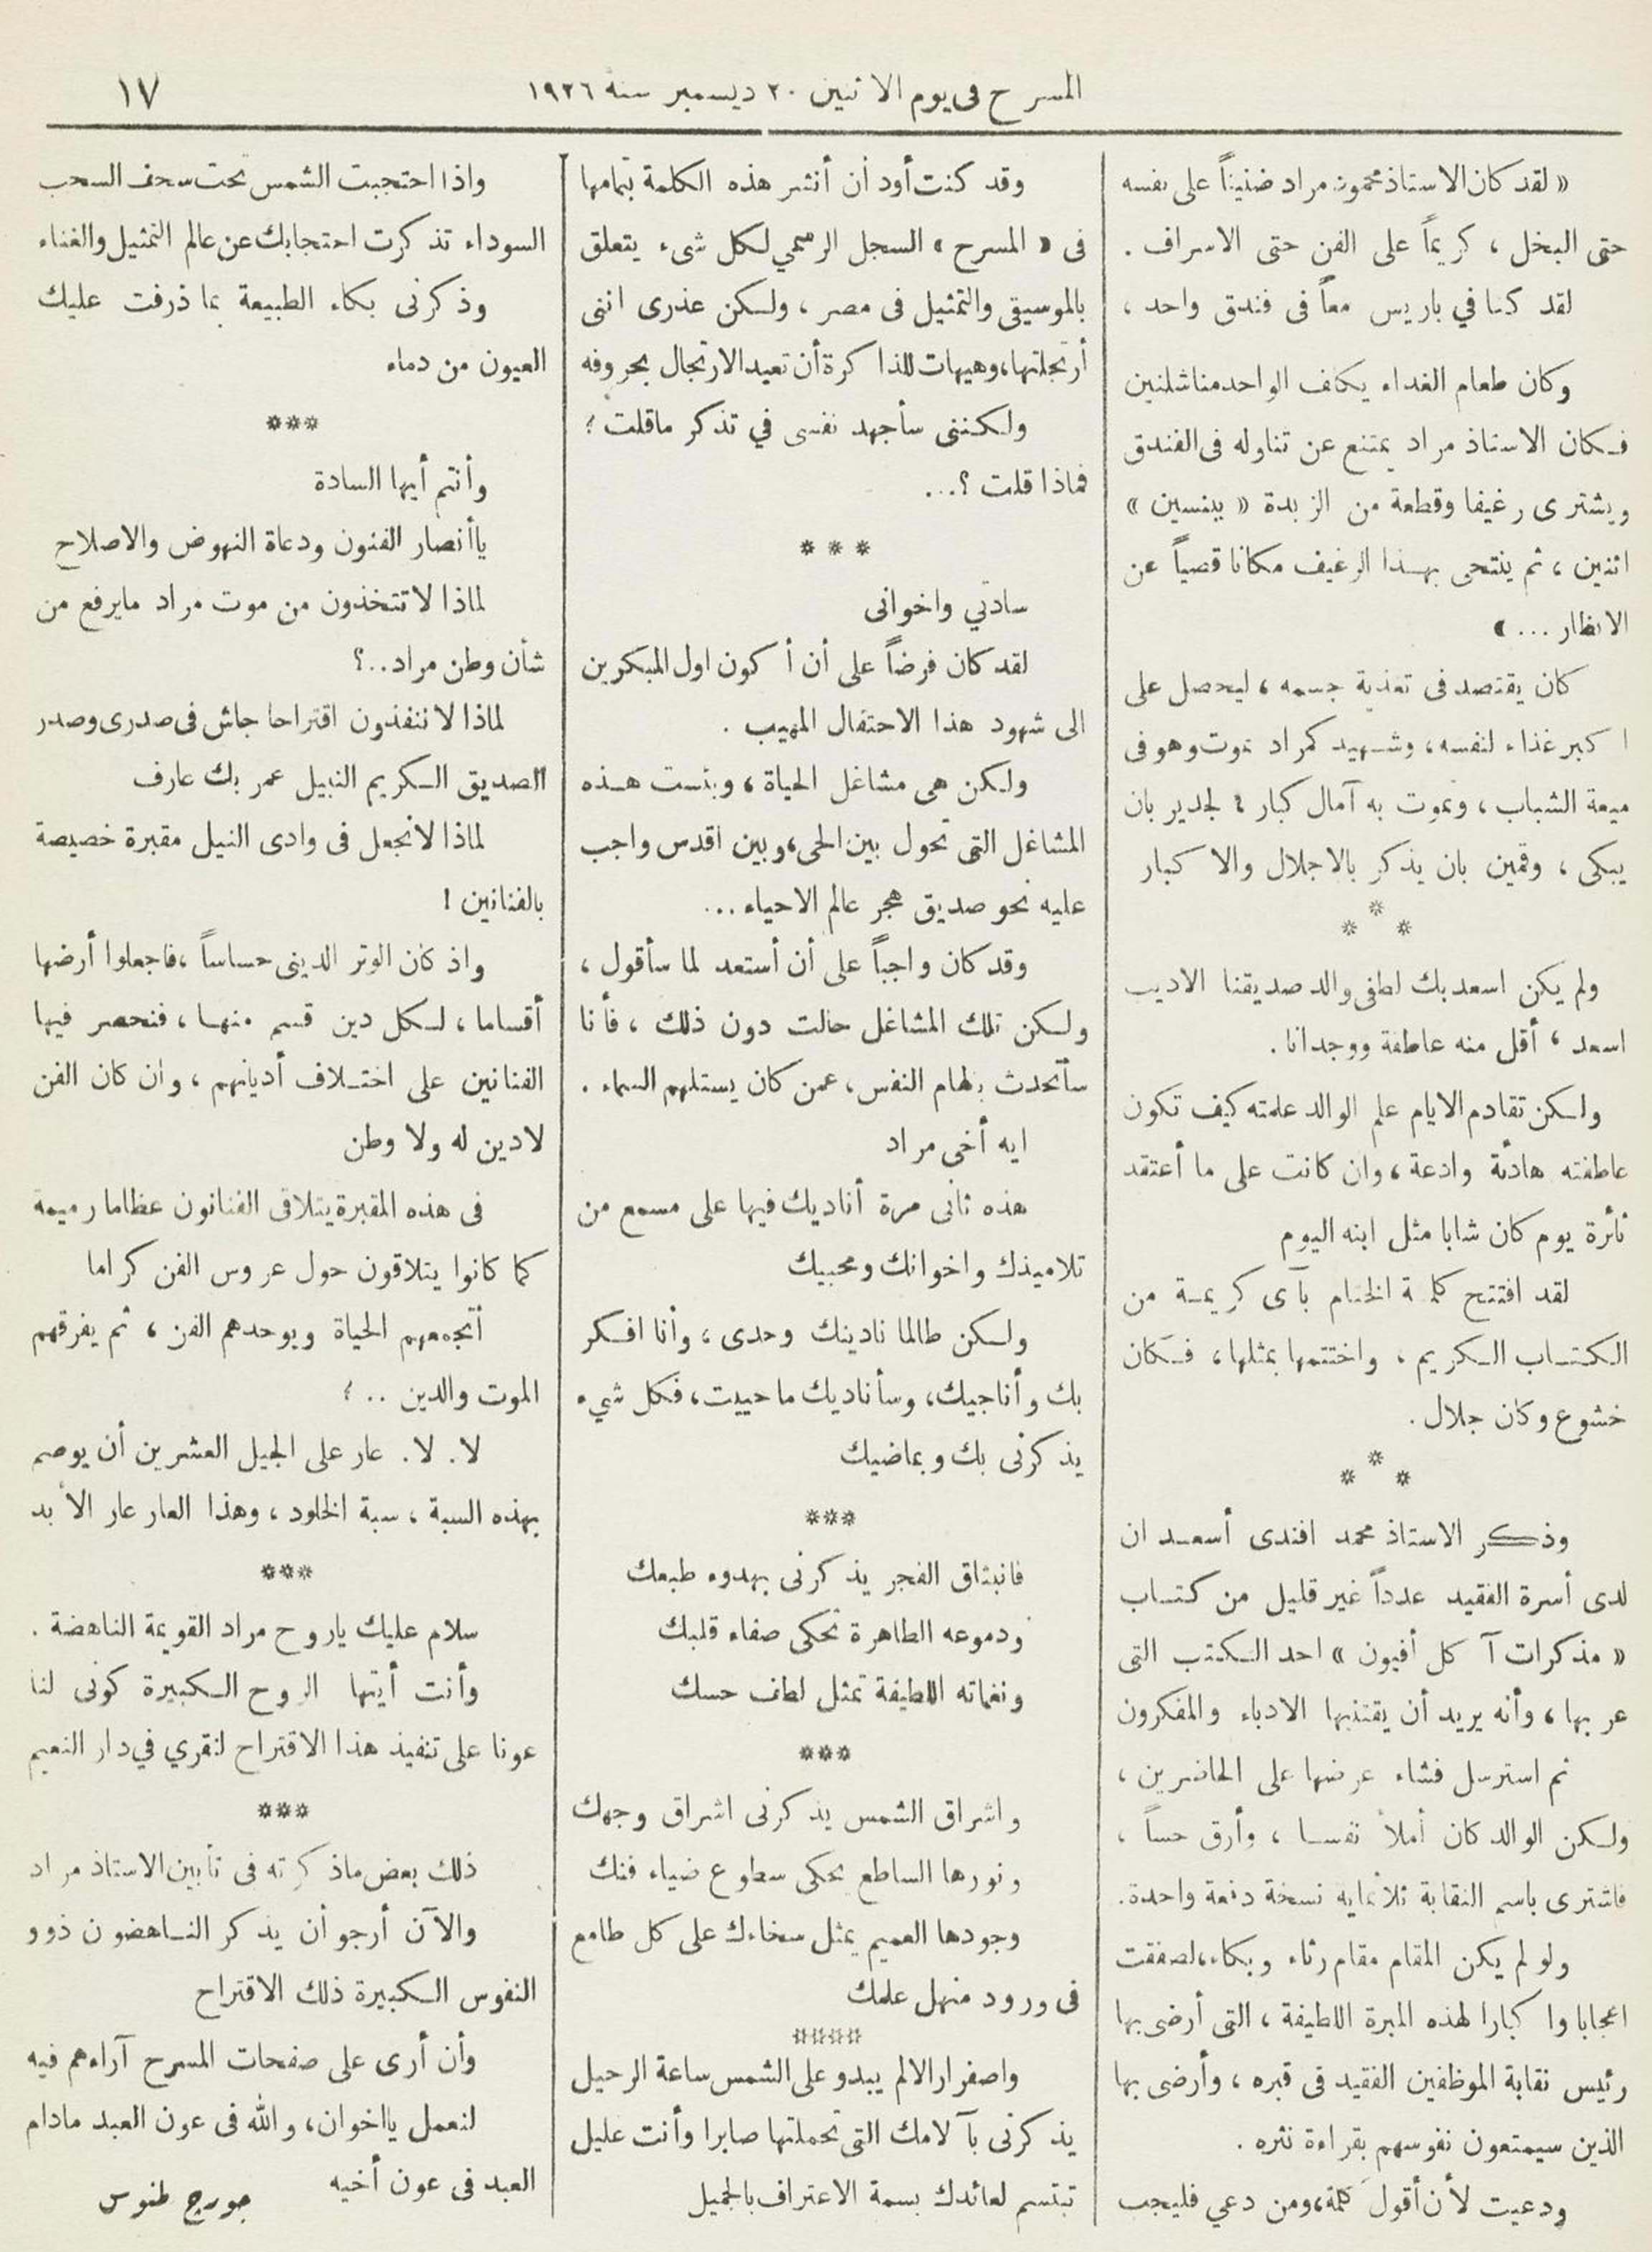 المسرح فى يوم الاثنين ٢٠ ديسمبر سنة ١٩٢٦
١٧
« لقد كان الاستاذ محمود مراد ضنيناً على نفسه
حتى البخل ، كريماً على الفن حتى الاسراف .
لقد كنا في باريس معاً فى فندق واحد ،
وكان طعام الغداء يكلف الواحد منا شلنين
فكان الاستاذ مراد يمتنع عن تناوله فى الفندق
ويشترى رغيفا وقطعة من الزبدة « ببنسين »
اثنين ، ثم ينتحى بهذا الرغيف مكانا قصياً عن
الانظار ... »
كان يقتصد فى تغذية جسمه ، ليحصل على
اكبر غذاء لنفسه ، وشهيد كمراد يموت وهو فى
ميعة الشباب ، وتموت به آمال كبار ؛ لجدير بان
يبكى ، وقمين بان يذكر بالاجلال والاكبار
* * *
ولم يكن اسعد بك لطفى والد صديقنا الاديب
اسعد ، أقل منه عاطفة ووجدانا .
ولكن تقادم الايام علم الوالد علمته كيف تكون
عاطفته هادئة وادعة ، وان كانت على ما أعتقد
ثأرة يوم كان شابا مثل ابنه اليوم
لقد افتتح كلمة الختام بآى كريمة من
الكتاب الكريم ، واختتمها بمثلها ، فكان
خشوع وكان جلال .
* * *
وذكر الاستاذ محمد افندى أسعد ان
لدى أسرة الفقيد عدداً غير قليل من كتاب
« مذكرات آكل أفيون » احد الكتب التى
عربها ، وأنه يريد أن يقتنيها الادباء والمفكرون
ثم استرسل فشاء عرضها على الحاضرين ،
ولكن الوالد كان أملأ نفسا ، وأرق حساً ،
فاشترى باسم النقابة ثلاثمايه نسخة دفعة واحدة .
ولو لم يكن المقام مقام رثاء وبكاء، لصفقت
اعجابا واكبارا لهذه المبرة اللطيفة ، التى أرضى بها
رئيس نقابة الموظفين الفقيد فى قبره ، وأرضى بها
الذين سيمتعون نفوسهم بقراءة نثره .
ودعيت لأن أقول كلمة، ومن دعي فليجب
وقد كنت أود أن أنشر هذه الكلمة بتمامها
فى « المسرح » السجل الرسمي لكل شىء يتعلق
بالموسيقى والتمثيل فى مصر ، ولكن عذرى اننى
أرتجلتها، وهيهات للذاكرة أن تعيد الارتجال بحروفه
ولكننى سأجهد نفسى في تذكر ماقلت ؛
فماذا قلت ؟...
* * *
سادتي واخوانى
لقد كان فرضاً على أن أكون اول المبكرين
الى شهود هذا الاحتفال المهيب .
ولكن هى مشاغل الحياة ، وبئست هذه
المشاغل التى تحول بين الحى، وبين اقدس واجب
عليه نحو صديق هجر عالم الاحياء ...
وقد كان واجباً على أن أستعد لما سأقول ،
ولكن تلك المشاغل حالت دون ذلك ، فأنا
سأتحدث بالهام النفس، عمن كان يستلهم السماء .
ايه أخى مراد
هذه ثانى مرة أناديك فيها على مسمع من
تلاميذك واخوانك ومحبيك
ولكن طالما ناديتك وحدى ، وأنا افكر
بك وأناجيك، وسأناديك ما حييت، فكل شيء
يذكرنى بك وبماضيك
***
فانبثاق الفجر يذكرنى بهدوء طبعك
ودموعه الطاهرة تحكى صفاء قلبك
ونغماته اللطيفة تمثل لطف حسك
***
واشراق الشمس يذكرنى اشراق وجهك
ونورها الساطع يحكى سطوع ضياء فنك
وجودها العميم يمثل سخاءك على كل طامع
فى ورود منهل علمك
****
واصفرار الالم يبدو على الشمس ساعة الرحيل
يذكرنى بآلامك التى تحملتها صابرا وأنت عليل
تبتسم لعائدك بسمة الاعتراف بالجميل
واذا احتجبت الشمس تحت سحف السحب
السوداء تذكرت احتجابك عن عالم التمثيل والغناء
وذكرنى بكاء الطبيعة بما ذرفت عليك
العيون من دماء
***
وأنتم أيها السادة
ياأنصار الفنون ودعاة النهوض والاصلاح
لماذا لا تتخذون من موت مراد مايرفع من
شأن وطن مراد..؟
لماذا لا تنفذون اقتراحا جاش فى صدرى وصدر
الصديق الكريم النبيل عمر بك عارف
لماذا لانجعل فى وادى النيل مقبرة خصيصة
بالفنانين !
واذ كان الوتر الدينى حساساً ، فاجعلوا أرضها
أقساما ، لكل دين قسم منها ، فنحصر فيها
الفنانين على اختلاف أديانهم ، وان كان الفن
لادين له ولا وطن
فى هذه المقبرة يتلاقى الفنانون عظاما رميمة
كما كانوا يتلاقون حول عروس الفن كراما
أتجمعهم الحياة ويوحدهم الفن ، ثم يفرقهم
الموت والدين .. ؟
لا. لا. عار على الجيل العشرين أن يوصم
بهذه السبة ، سبة الخلود ، وهذا العار عار الأبد
***
سلام عليك ياروح مراد القويمة الناهضة .
وأنت أيتها الروح الكبيرة كونى لنا
عونا على تنفيذ هذا الاقتراح لتقري في دار النعيم
***
ذلك بعض ماذكرته فى تأبين الاستاذ مراد
والآن أرجو أن يذكر الناهضون ذوو
النفوس الكبيرة ذلك الاقتراح
وأن أرى على صفحات المسرح آراءهم فيه
لنعمل يااخوان، والله فى عون العبد مادام
العبد فى عون أخيه
جورج طنوس